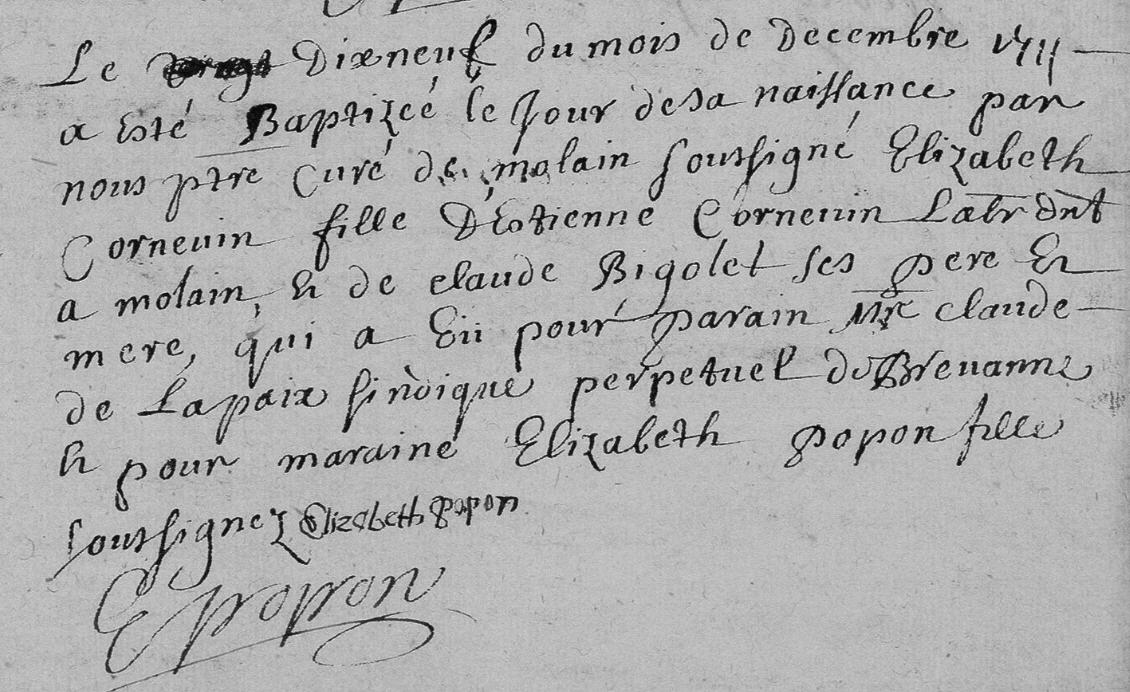 Le Dixneuf du mois de Decembre 1711
a Esté Baptizeé le Jour de sa naissance par
nous ptre Curé de molain soussigné Elizabeth
Cornevin fille D'Estienne Cornevin Labr dnt
a molain, et de claude Bigolet ses pere Et
mere, qui a Eü pour parain Mre claude
de Lapaix sindique perpetuel de Brevanne
et pour maraine Elizabeth popon fille
soussignez Elizabeth popon
E popon